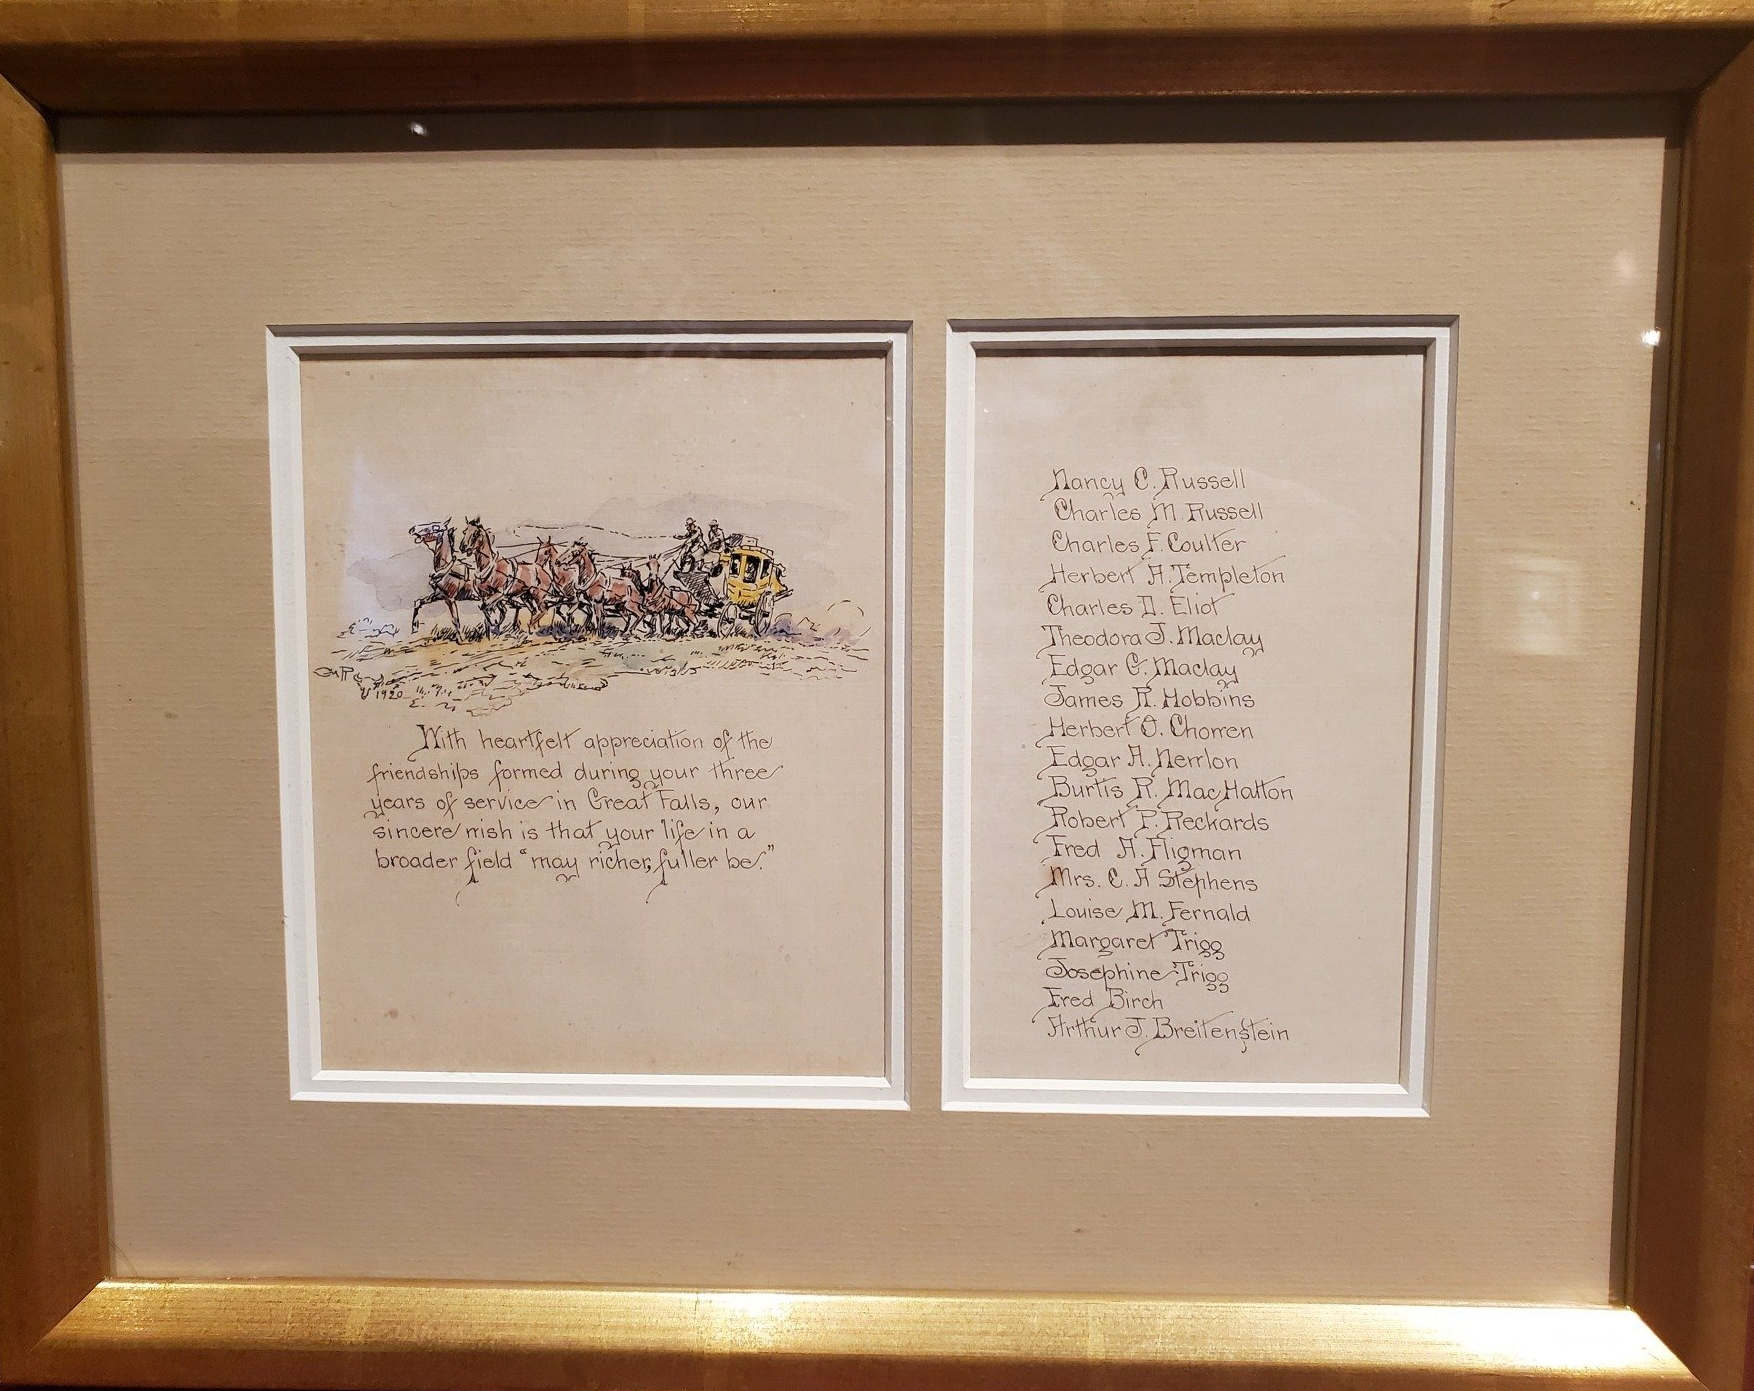 CMR
1920
With heartfelt appreciation of the
friendships formed during your three
years of service in Great Falls, our
sincere wish is that your life in a
broader field "may richer, fuller be."
Nancy C. Russell
Charles M. Russell
Charles F. Coulter
Herbert A. Templeton
Charles D. Eliot
Theodora J. Maclay
Edgar G. Maclay
James R. Hobbins
Herbert O. Chowen
Edgar A. Newlon
Burtis R. MacHatton
Robert P. Reckards
Fred A. Fligman
Mrs. C. A Stephens
Louise M. Fernald
Margaret Trigg
Josephine Trigg
Fred Birch
Arthur J. Breitenstein